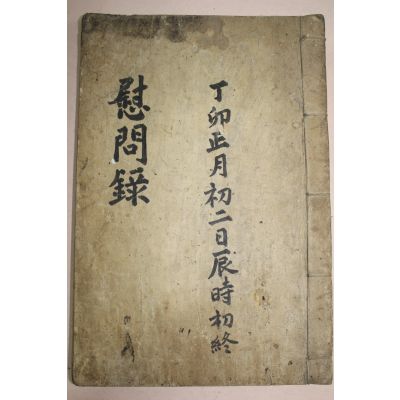 丁卯正月初二日辰時初終
慰問錄